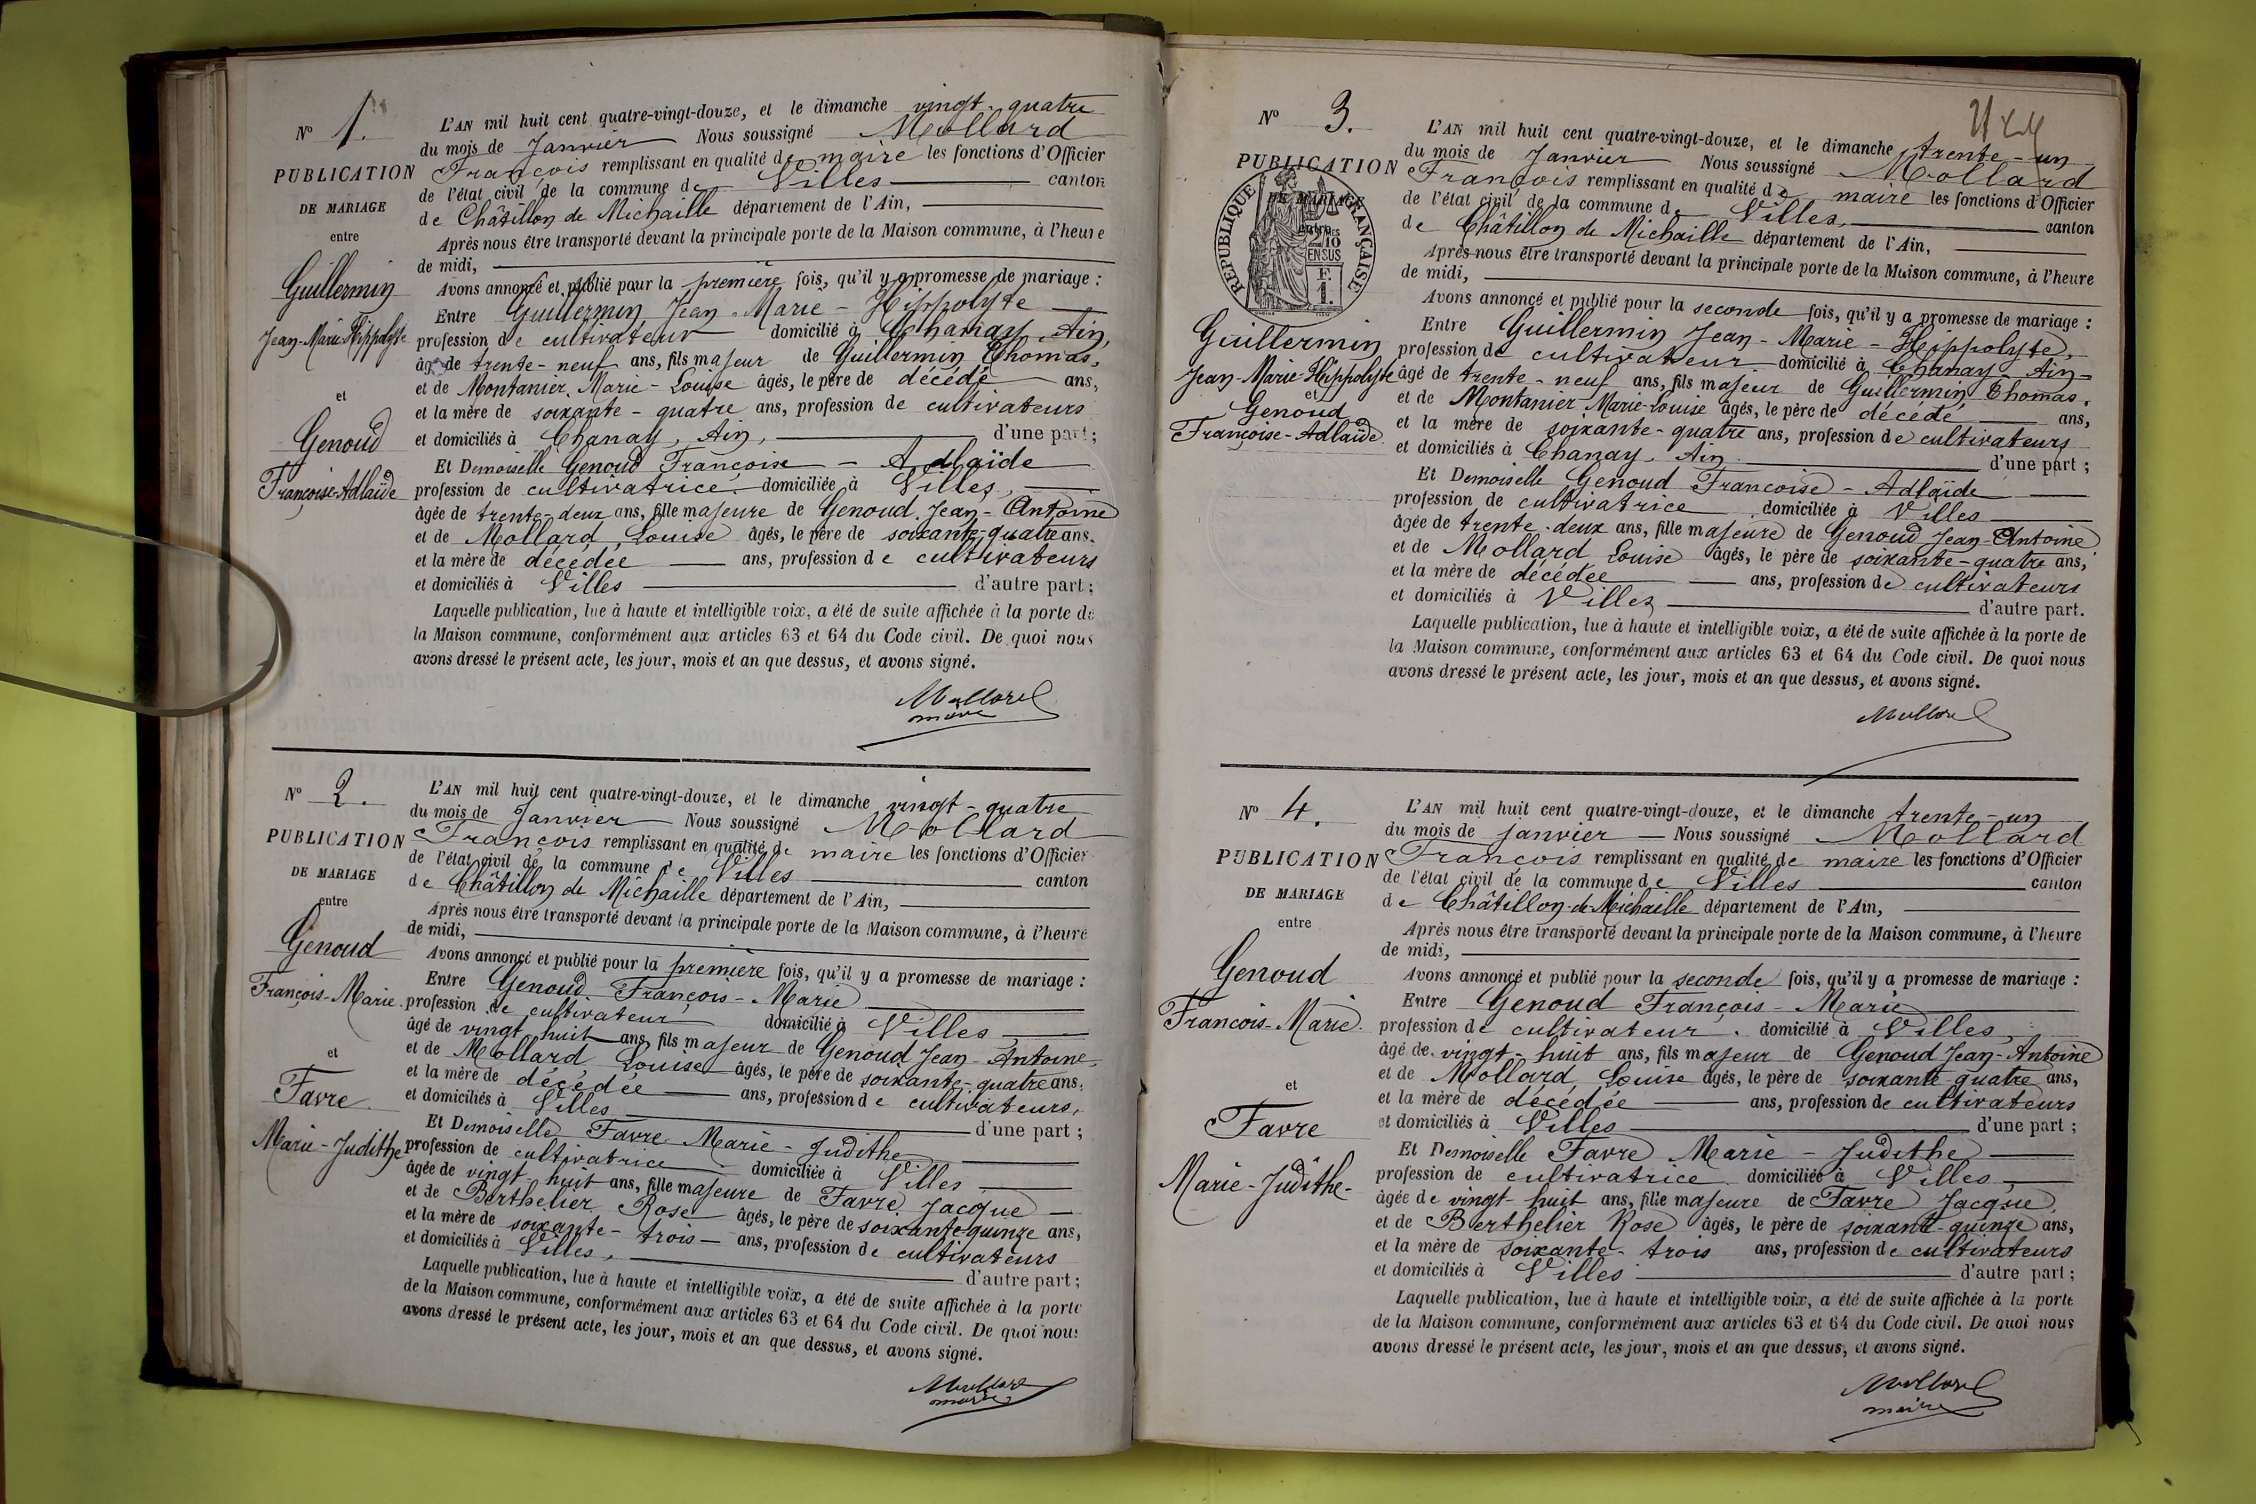 N° 1.
PUBLICATION
DE MARIAGE
entre
Guillermin
Jean-Marie-Hippolyte
et
Genoud
Françoise-Adlaïde
L'AN mil huit cent quatre-vingt-douze, et le dimanche vingt-quatre
du mois de Janvier Nous soussigné Mollard
François remplissant en qualité de maire les fonctions d'Officier
de l'état civil de la commune de Villes canton
de Châtillon de Michaille département de l'Ain,
Après nous être transporté devant la principale porte de la Maison commune, à l'heure
de midi,
Avons annoncé et publié pour la première fois, qu'il y a promesse de mariage :
Entre Guillermin Jean-Marie-Hippolyte
profession de cultivateur domicilié à Chanay, Ain,
âgé de trente-neuf ans, fils majeur de Guillermin Thomas,
et de Montanier Marie-Louise âgés, le père de décédé ans,
et la mère de soixante-quatre ans, profession de cultivateurs
et domiciliés à Chanay, Ain, d'une part ;
Et Demoiselle Genoud Françoise-Adlaïde
profession de cultivatrice domiciliée à Villes,
âgée de trente-deux ans, fille majeure de Genoud Jean-Antoine
et de Mollard, Louise âgés, le père de soixante-quatre ans,
et la mère de décédée ans, profession de cultivateurs
et domiciliés à Villes d'autre part ;
Laquelle publication, lue à haute et intelligible voix, a été de suite affichée à la porte de
la Maison commune, conformément aux articles 63 et 64 du Code civil. De quoi nous
avons dressé le présent acte, les jour, mois et an que dessus, et avons signé.
Mollard
maire
N° 2.
PUBLICATION
DE MARIAGE
entre
Genoud
François-Marie
et
Favre
Marie-Judithe
L'AN mil huit cent quatre-vingt-douze, et le dimanche vingt-quatre
du mois de Janvier Nous soussigné Mollard
François remplissant en qualité de maire les fonctions d'Officier
de l'état civil de la commune de Villes canton
de Châtillon de Michaille département de l'Ain,
Après nous être transporté devant la principale porte de la Maison commune, à l'heure
de midi,
Avons annoncé et publié pour la première fois, qu'il y a promesse de mariage :
Entre Genoud François-Marie
profession de cultivateur domicilié à Villes
âgé de vingt-huit ans, fils majeur de Genoud Jean-Antoine
et de Mollard Louise âgés, le père de soixante-quatre ans,
et la mère de décédée ans, profession de cultivateurs,
et domiciliés à Villes d'une part ;
Et Demoiselle Favre Marie-Judithe
profession de cultivatrice domiciliée à Villes
âgée de vingt-huit ans, fille majeure de Favre Jacque
et de Berthelier Rose âgés, le père de soixante-quinze ans,
et la mère de soixante-trois ans, profession de cultivateurs
et domiciliés à Villes, d'autre part ;
Laquelle publication, lue à haute et intelligible voix, a été de suite affichée à la porte
de la Maison commune, conformément aux articles 63 et 64 du Code civil. De quoi nous
avons dressé le présent acte, les jour, mois et an que dessus, et avons signé.
Mollard
maire
N° 3.
PUBLICATION
DE MARIAGE
entre
RÉPUBLIQUE FRANÇAISE
10
EN SUS
F.
1.
Guillermin
Jean-Marie Hippolyte
et
Genoud
Françoise-Adlaïde
L'AN mil huit cent quatre-vingt-douze, et le dimanche trente-un
du mois de Janvier Nous soussigné Mollard
François remplissant en qualité de maire les fonctions d'Officier
de l'état civil de la commune de Villes, canton
de Châtillon de Michaille département de l'Ain,
Après nous être transporté devant la principale porte de la Maison commune, à l'heure
de midi,
Avons annoncé et publié pour la seconde fois, qu'il y a promesse de mariage :
Entre Guillermin Jean-Marie-Hippolyte,
profession de cultivateur domicilié à Chanay Ain
âgé de trente-neuf ans, fils majeur de Guillermin Thomas,
et de Montanier Marie-Louise âgés, le père de décédé ans,
et la mère de soixante-quatre ans, profession de cultivateurs
et domiciliés à Chanay, Ain d'une part ;
Et Demoiselle Genoud Françoise-Adlaïde
profession de cultivatrice domiciliée à Villes
âgée de trente-deux ans, fille majeure de Genoud Jean-Antoine
et de Mollard Louise âgés, le père de soixante-quatre ans,
et la mère de décédée ans, profession de cultivateurs
et domiciliés à Villes d'autre part.
Laquelle publication, lue à haute et intelligible voix, a été de suite affichée à la porte de
la Maison commune, conformément aux articles 63 et 64 du Code civil. De quoi nous
avons dressé le présent acte, les jour, mois et an que dessus, et avons signé.
Mollard
N° 4.
PUBLICATION
DE MARIAGE
entre
Genoud
François-Marie
et
Favre
Marie-Judithe
L'AN mil huit cent quatre-vingt-douze, et le dimanche trente-un
du mois de janvier Nous soussigné Mollard
François remplissant en qualité de maire les fonctions d'Officier
de l'état civil de la commune de Villes canton
de Châtillon-de-Michaille département de l'Ain,
Après nous être transporté devant la principale porte de la Maison commune, à l'heure
de midi,
Avons annoncé et publié pour la seconde fois, qu'il y a promesse de mariage :
Entre Genoud François-Marie
profession de cultivateur. domicilié à Villes,
âgé de vingt-huit ans, fils majeur de Genoud Jean-Antoine
et de Mollard Louise âgés, le père de soixante quatre ans,
et la mère de décédée ans, profession de cultivateurs
et domiciliés à Villes d'une part ;
Et Demoiselle Favre Marie-Judithe
profession de cultivatrice domiciliée à Villes,
âgée de vingt-huit ans, fille majeure de Favre Jacque
et de Berthelier Rose âgés, le père de soixante-quinze ans,
et la mère de soixante-trois ans, profession de cultivateurs
et domiciliés à Villes d'autre part ;
Laquelle publication, lue à haute et intelligible voix, a été de suite affichée à la porte
de la Maison commune, conformément aux articles 63 et 64 du Code civil. De quoi nous
avons dressé le présent acte, les jour, mois et an que dessus, et avons signé.
Mollard
maire